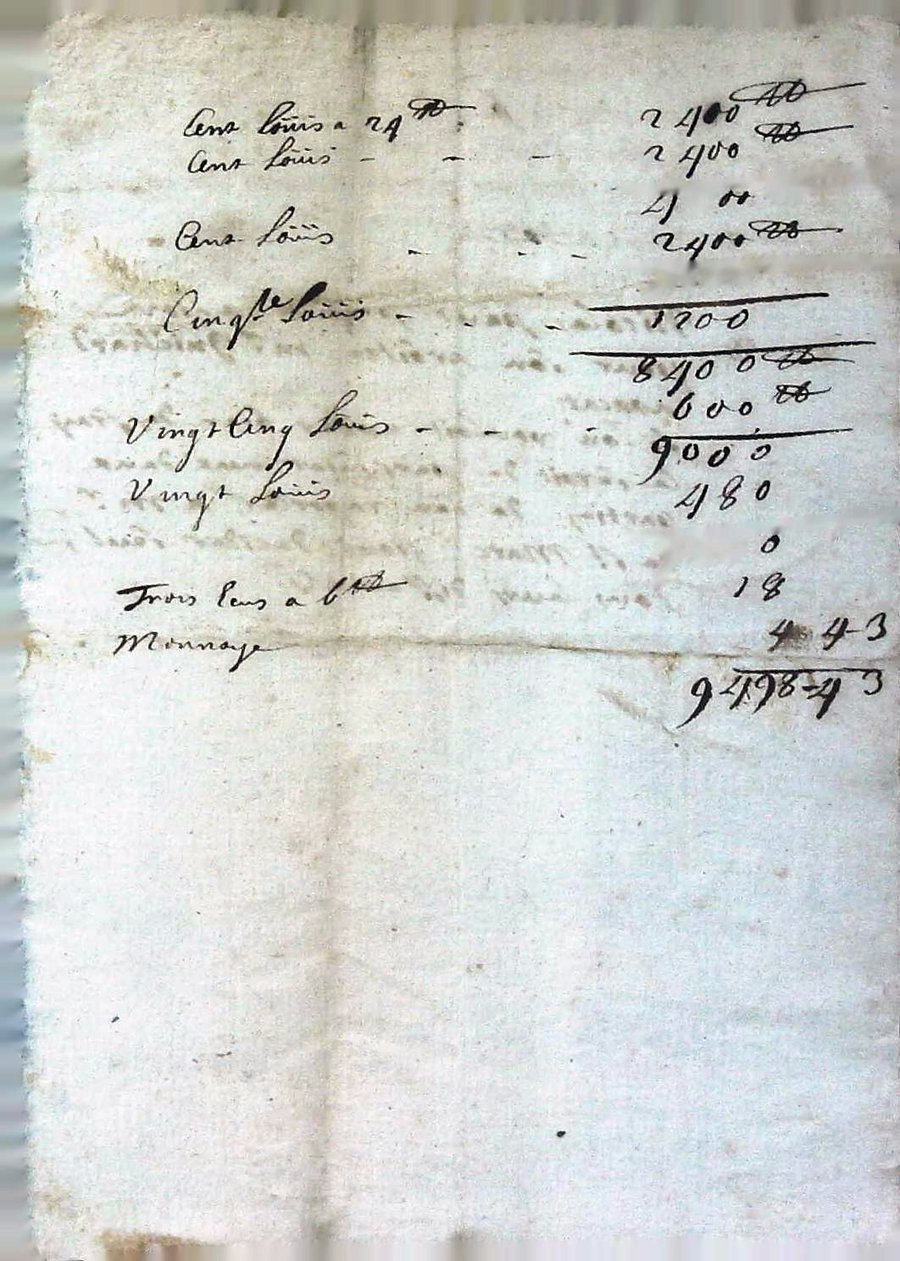 Cent Loüis a 24 ₶ 2400 ₶
Cent Loüis - - - 2400 ₶
4 00
Cent Loüis - - - 2400 ₶
Cinqte Loüis - - - 1200
8400 ₶
600 ₶
Vingt Cinq Loüis - - -
9000
Vingt Loüis 480
0
Trois Ecus a 6 ₶ 18
Monnoye 4 4 3
9498-4 3